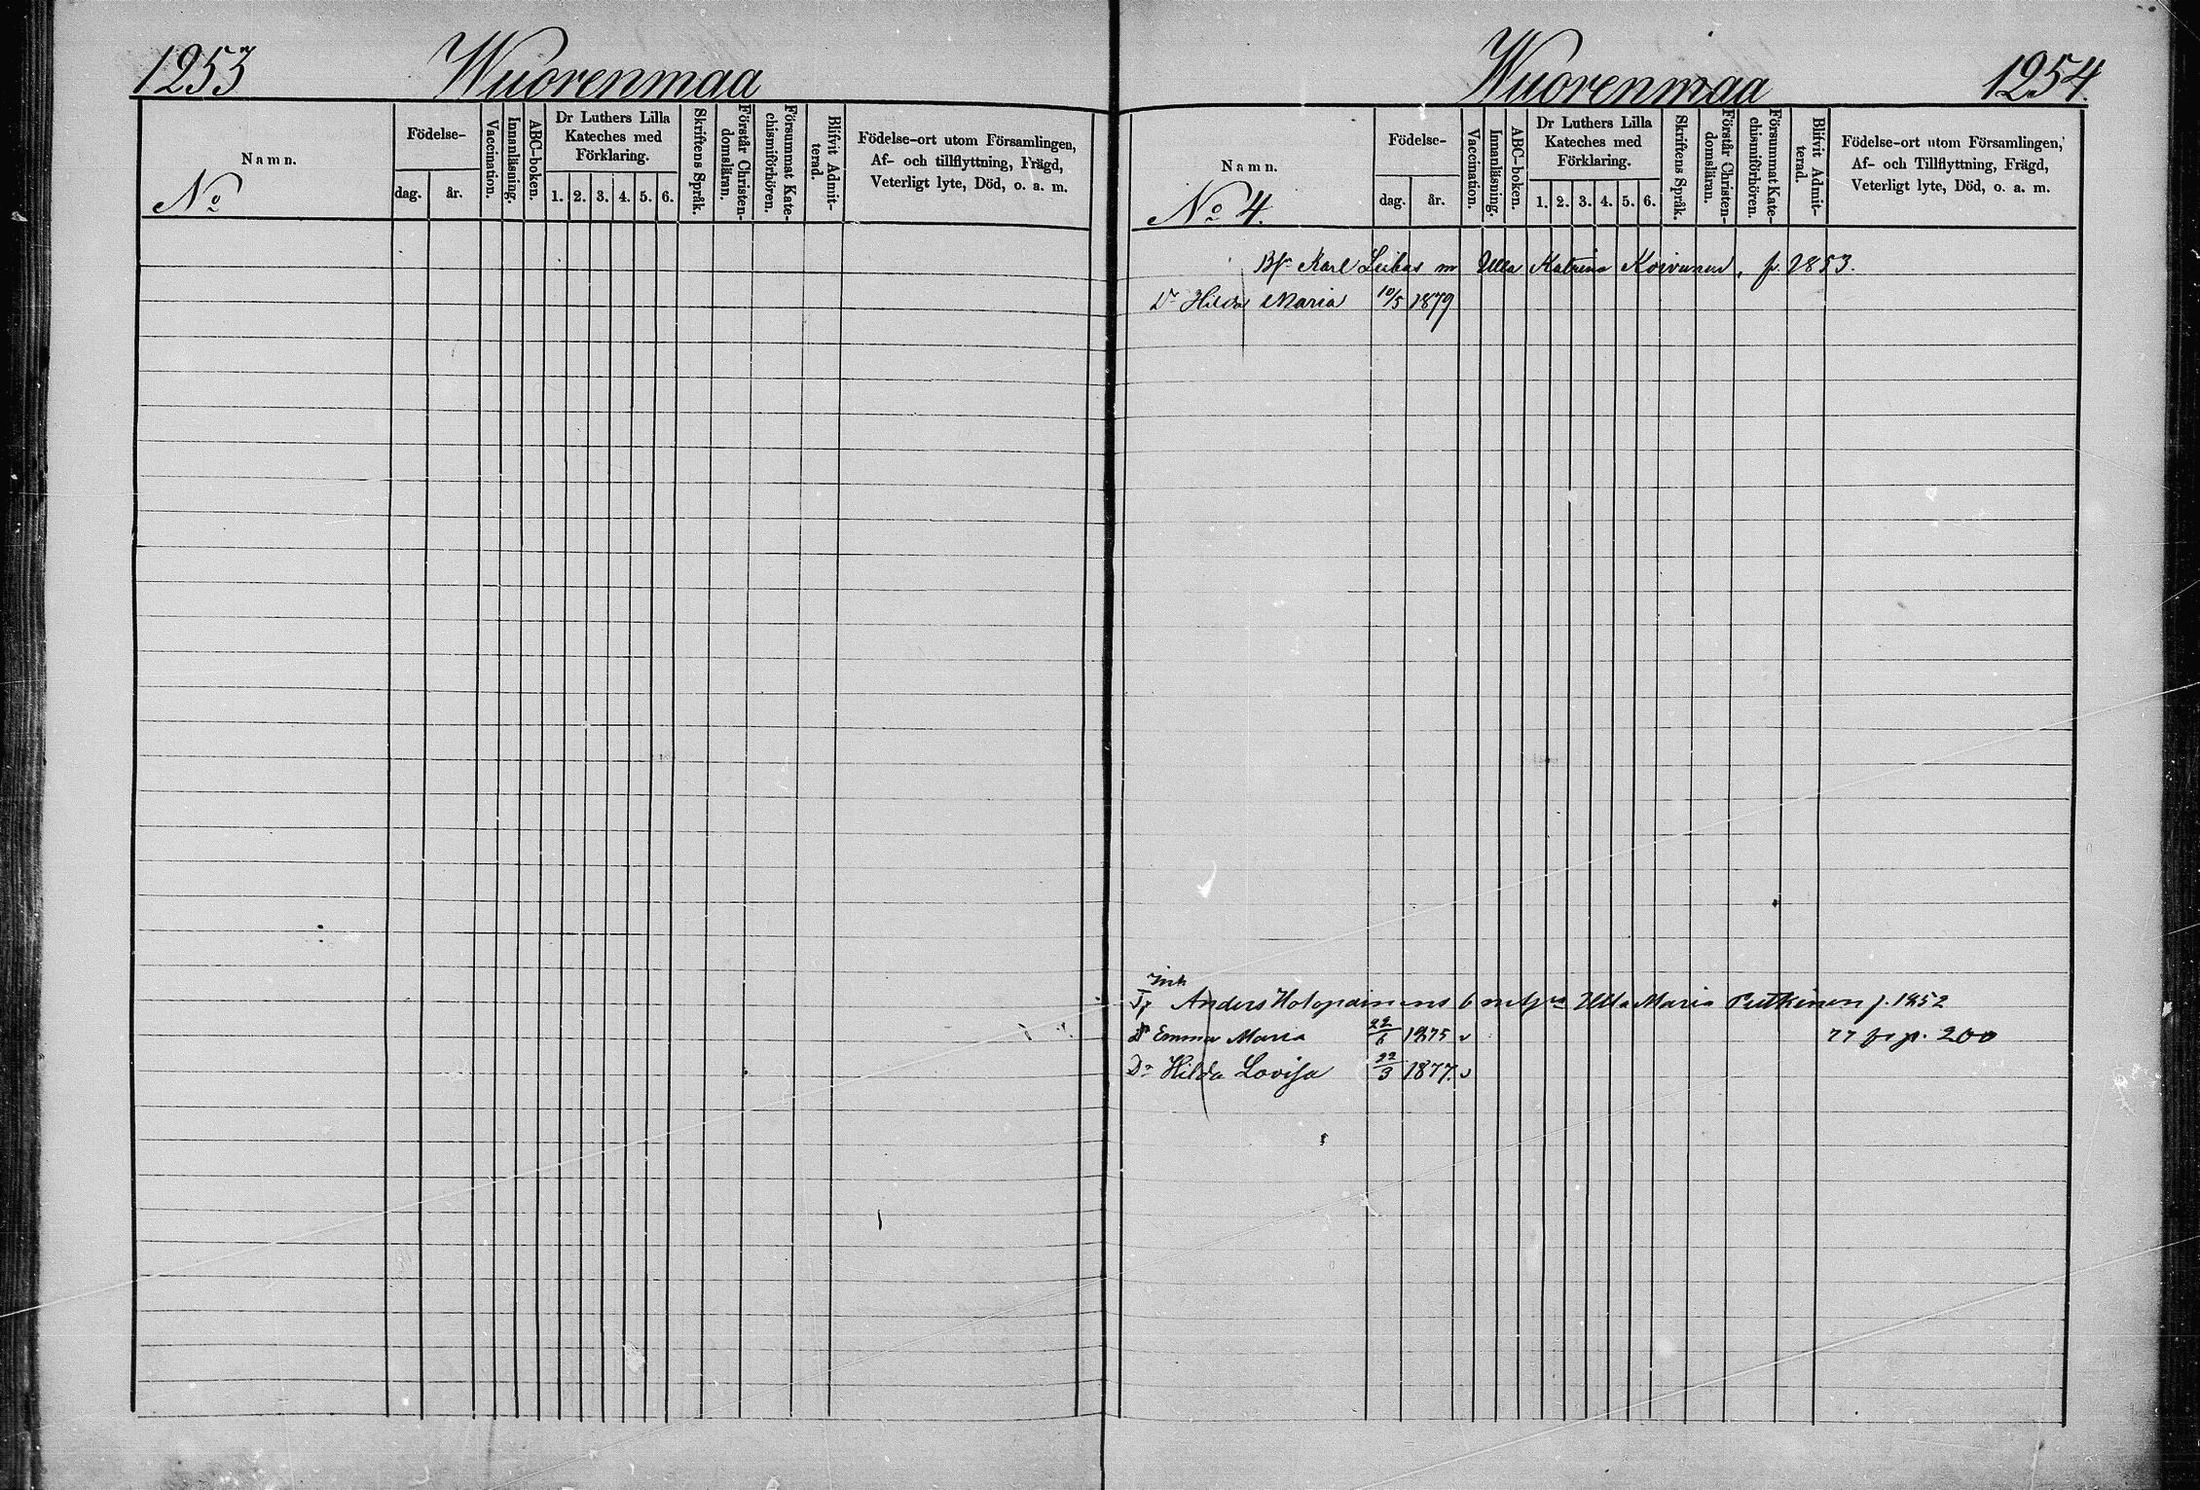 1253 Wuorenmaa
Namn.
No
Födelse-
dag. år.
Vaccination.
Innanläsning.
ABC-boken.
Dr Luthers Lilla
Kateches med
Förklaring.
1. 2. 3. 4. 5. 6.
Skriftens Språk.
Förstår Christen-
domsläran.
Försummat Kate-
chismiförhören.
Blifvit Admit-
terad.
Födelse-ort utom Församlingen,
Af- och tillflyttning, Frägd,
Veterligt lyte, Död, o. a. m.
Wuorenmaa 1254.
Namn.
No 4.
Födelse-
dag. år.
Vaccination.
Innanläsning.
ABC-boken.
Dr Luthers Lilla
Kateches med
Förklaring.
1. 2. 3. 4. 5. 6.
Skriftens Språk.
Förstår Christen-
domsläran.
Försummat Kate-
chismiförhören.
Blifvit Admit-
terad.
Födelse-ort utom Församlingen,
Af- och Tillflyttning, Frägd,
Veterligt lyte, Död, o. a. m.
Karl m Ulla Katrina Koivunen, f. 1853.
Dr Hilda Maria 10/5 1879
Inh
Anders Holopainens Ulla Maria Putkinen f. 1852
Emma Maria 22/6 1875 v 77 fr p. 200
Dr Hilda Lovisa 22/3 1877. v